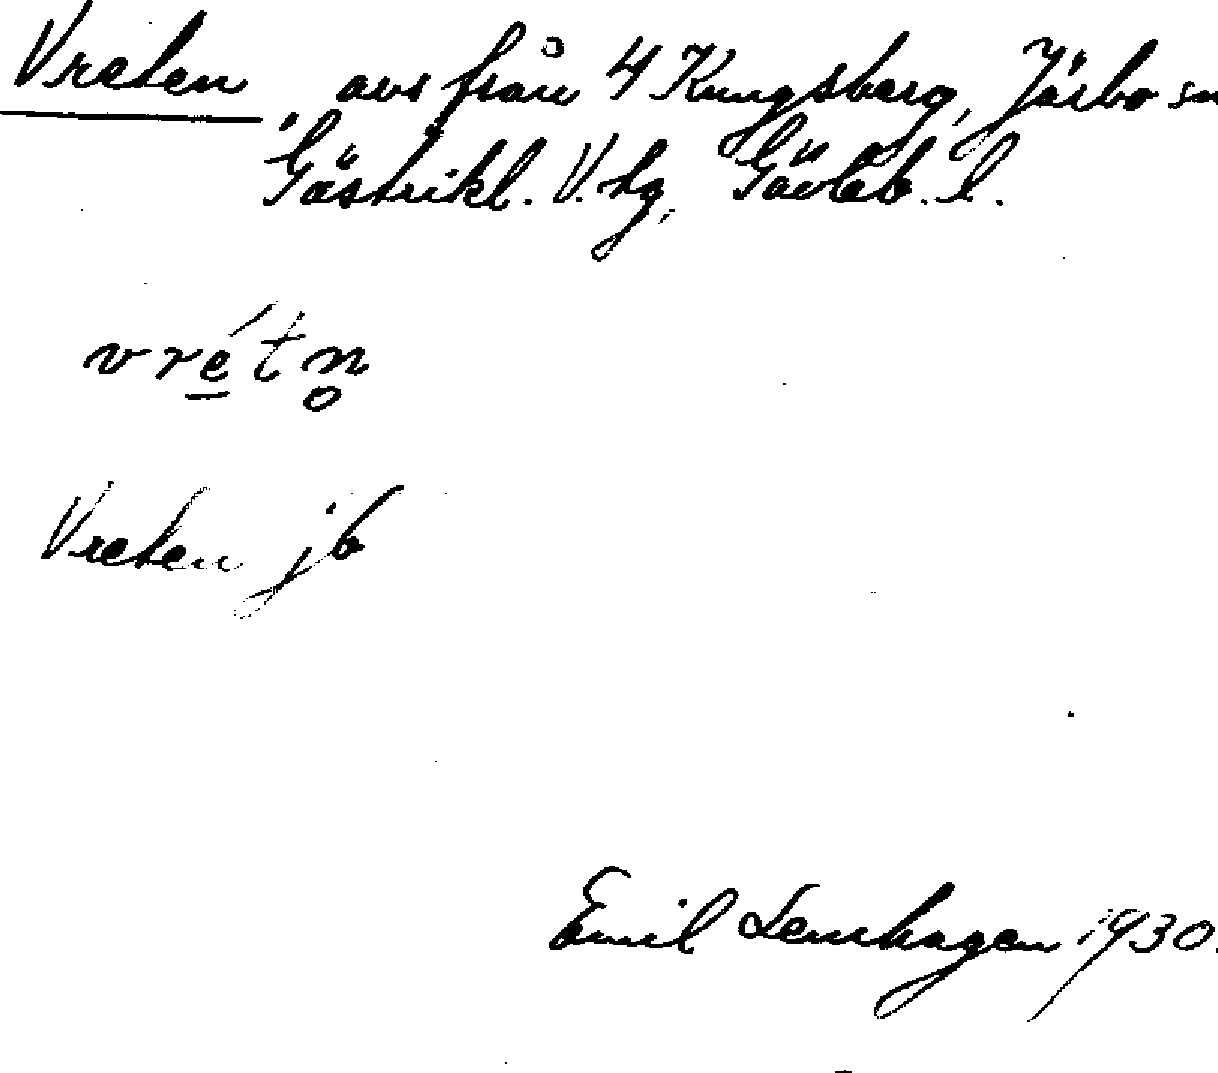 Vreten avs från 4 Kungsberg, Järbo sn
Gästrikl. V. hg, Gävleb. l.
vré̲tn̥
Vreten jb
Emil Lenhagen 1930.